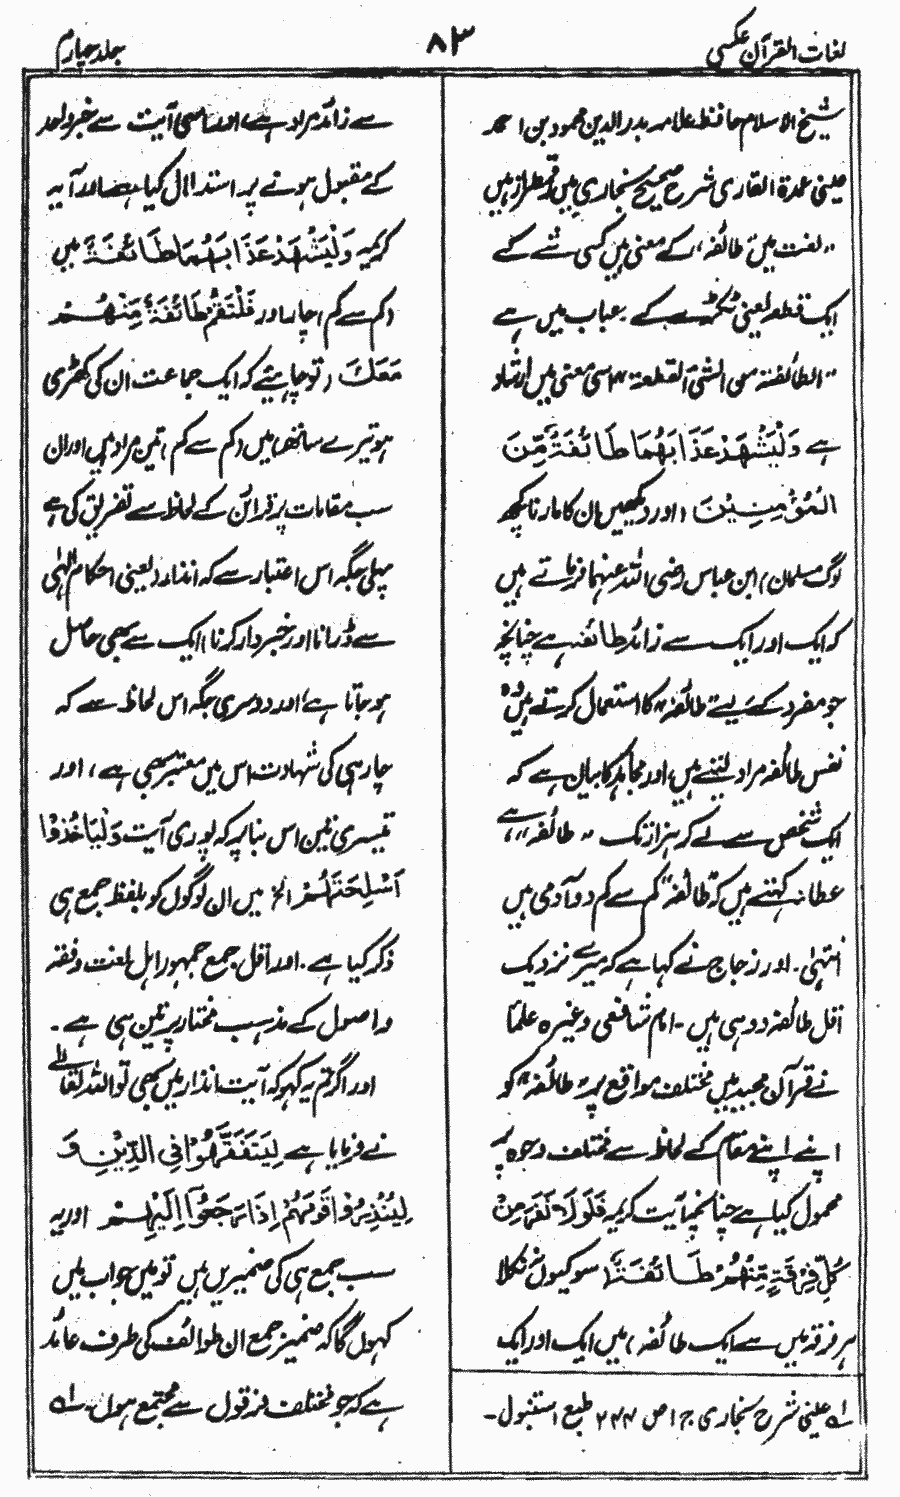 لغات القرآن عکسی
۸۳
جلد چہارم
شیخ الاسلام حافظ علامہ بدر الدین محمود بن احمد
عینی عمدۃ القاری شرح صحیح بخاری میں رقمطراز ہیں
"لغت میں "طائفۃ" کے معنی ہیں کسی شے کے
ایک قطعہ یعنی ٹکڑے کے۔ عباب میں ہے
"الطائفۃ من الشئ القطعۃ منہ" اسی معنی میں ارشاد
ہے وَلْيَشْهَدْ عَذَابَهُمَا طَائِفَةٌ مِّنَ
الْمُؤْمِنِينَ (اور دیکھیں ان کا مارنا کچھ
لوگ مسلمان) ابن عباس رضی اللہ عنہما فرماتے ہیں
کہ ایک اور ایک سے زائد طائفہ ہے چنانچہ
جو مفرد کے لیے "طائفۃ" کا استعمال کرتے ہیں وہ
نفس طائفہ مراد لیتے ہیں، اور مجاہد کا بیان ہے کہ
ایک شخص سے لے کر ہزار تک "طائفہ" ہے،
عطاء کہتے ہیں کہ "طائفہ" کم سے کم دو آدمی ہیں
انتہٰی۔ اور زجاج نے کہا ہے کہ میرے نزدیک
اقل طائفہ دو ہی ہیں۔ امام شافعی وغیرہ علما
نے قرآن مجید میں مختلف مواقع پر "طائفۃ" کو
اپنے اپنے مقام کے لحاظ سے مختلف وجوہ پر
محمول کیا ہے چنانچہ آیت کریمہ فَلَوْلَا نَفَرَ مِنْ
كُلِّ فِرْقَةٍ مِّنْهُمْ طَائِفَةٌ (سو کیوں نہ نکلا
ہر فرقہ میں سے ایک طائفہ) میں ایک اور ایک
لہ عینی شرح بخاری ج ۱ ص ۲۴۴ طبع استنبول۔
سے زائد مراد ہے، اور اسی آیت سے خبر واحد
کے مقبول ہونے پر استدلال کیا ہے اور آیہ
کریمہ وَلْيَشْهَدْ عَذَابَهُمَا طَائِفَةٌ میں
(کم سے کم) چار اور فَلْتَقُمْ طَائِفَةٌ مِّنْهُمْ
مَعَكَ (تو چاہیئے کہ ایک جماعت ان کی کھڑی
ہو تیرے ساتھ) میں (کم سے کم) تین مراد ہیں اور ان
سب مقامات پر قرائن کے لحاظ سے تفریق کی ہے
پہلی جگہ اس اعتبار سے کہ انذار (یعنی احکام الٰہی
سے ڈرانا اور خبردار کرنا) ایک سے بھی حاصل
ہو جاتا ہے، اور دوسری جگہ اس لحاظ سے کہ
چار ہی کی شہادت اس میں معتبر سمجھی ہے، اور
تیسری میں اس بنا پر کہ پوری آیت وَلْيَأْخُذُوْا
أَسْلِحَتَهُمْ الخ میں ان لوگوں کو بلفظ جمع ہی
ذکر کیا ہے۔ اور اقل جمع جمہور اہل لغت و فقہ
و اصول کے مذہب مختار پر تین ہی ہے۔
اور اگر تم یہ کہو کہ آیت انذار میں بھی تو اللہ تعالٰے
نے فرمایا ہے لِيَتَفَقَّهُوْا فِي الدِّيْنِ وَ
لِيُنْذِرُوْا قَوْمَهُمْ إِذَا رَجَعُوْا إِلَيْهِمْ اور یہ
سب جمع ہی کی ضمیریں ہیں تو میں جواب میں
کہوں گا کہ ضمیر جمع ان طوائف کی طرف عائد
ہے کہ جو مختلف فرقوں سے مجتمع ہوں۔ لہ